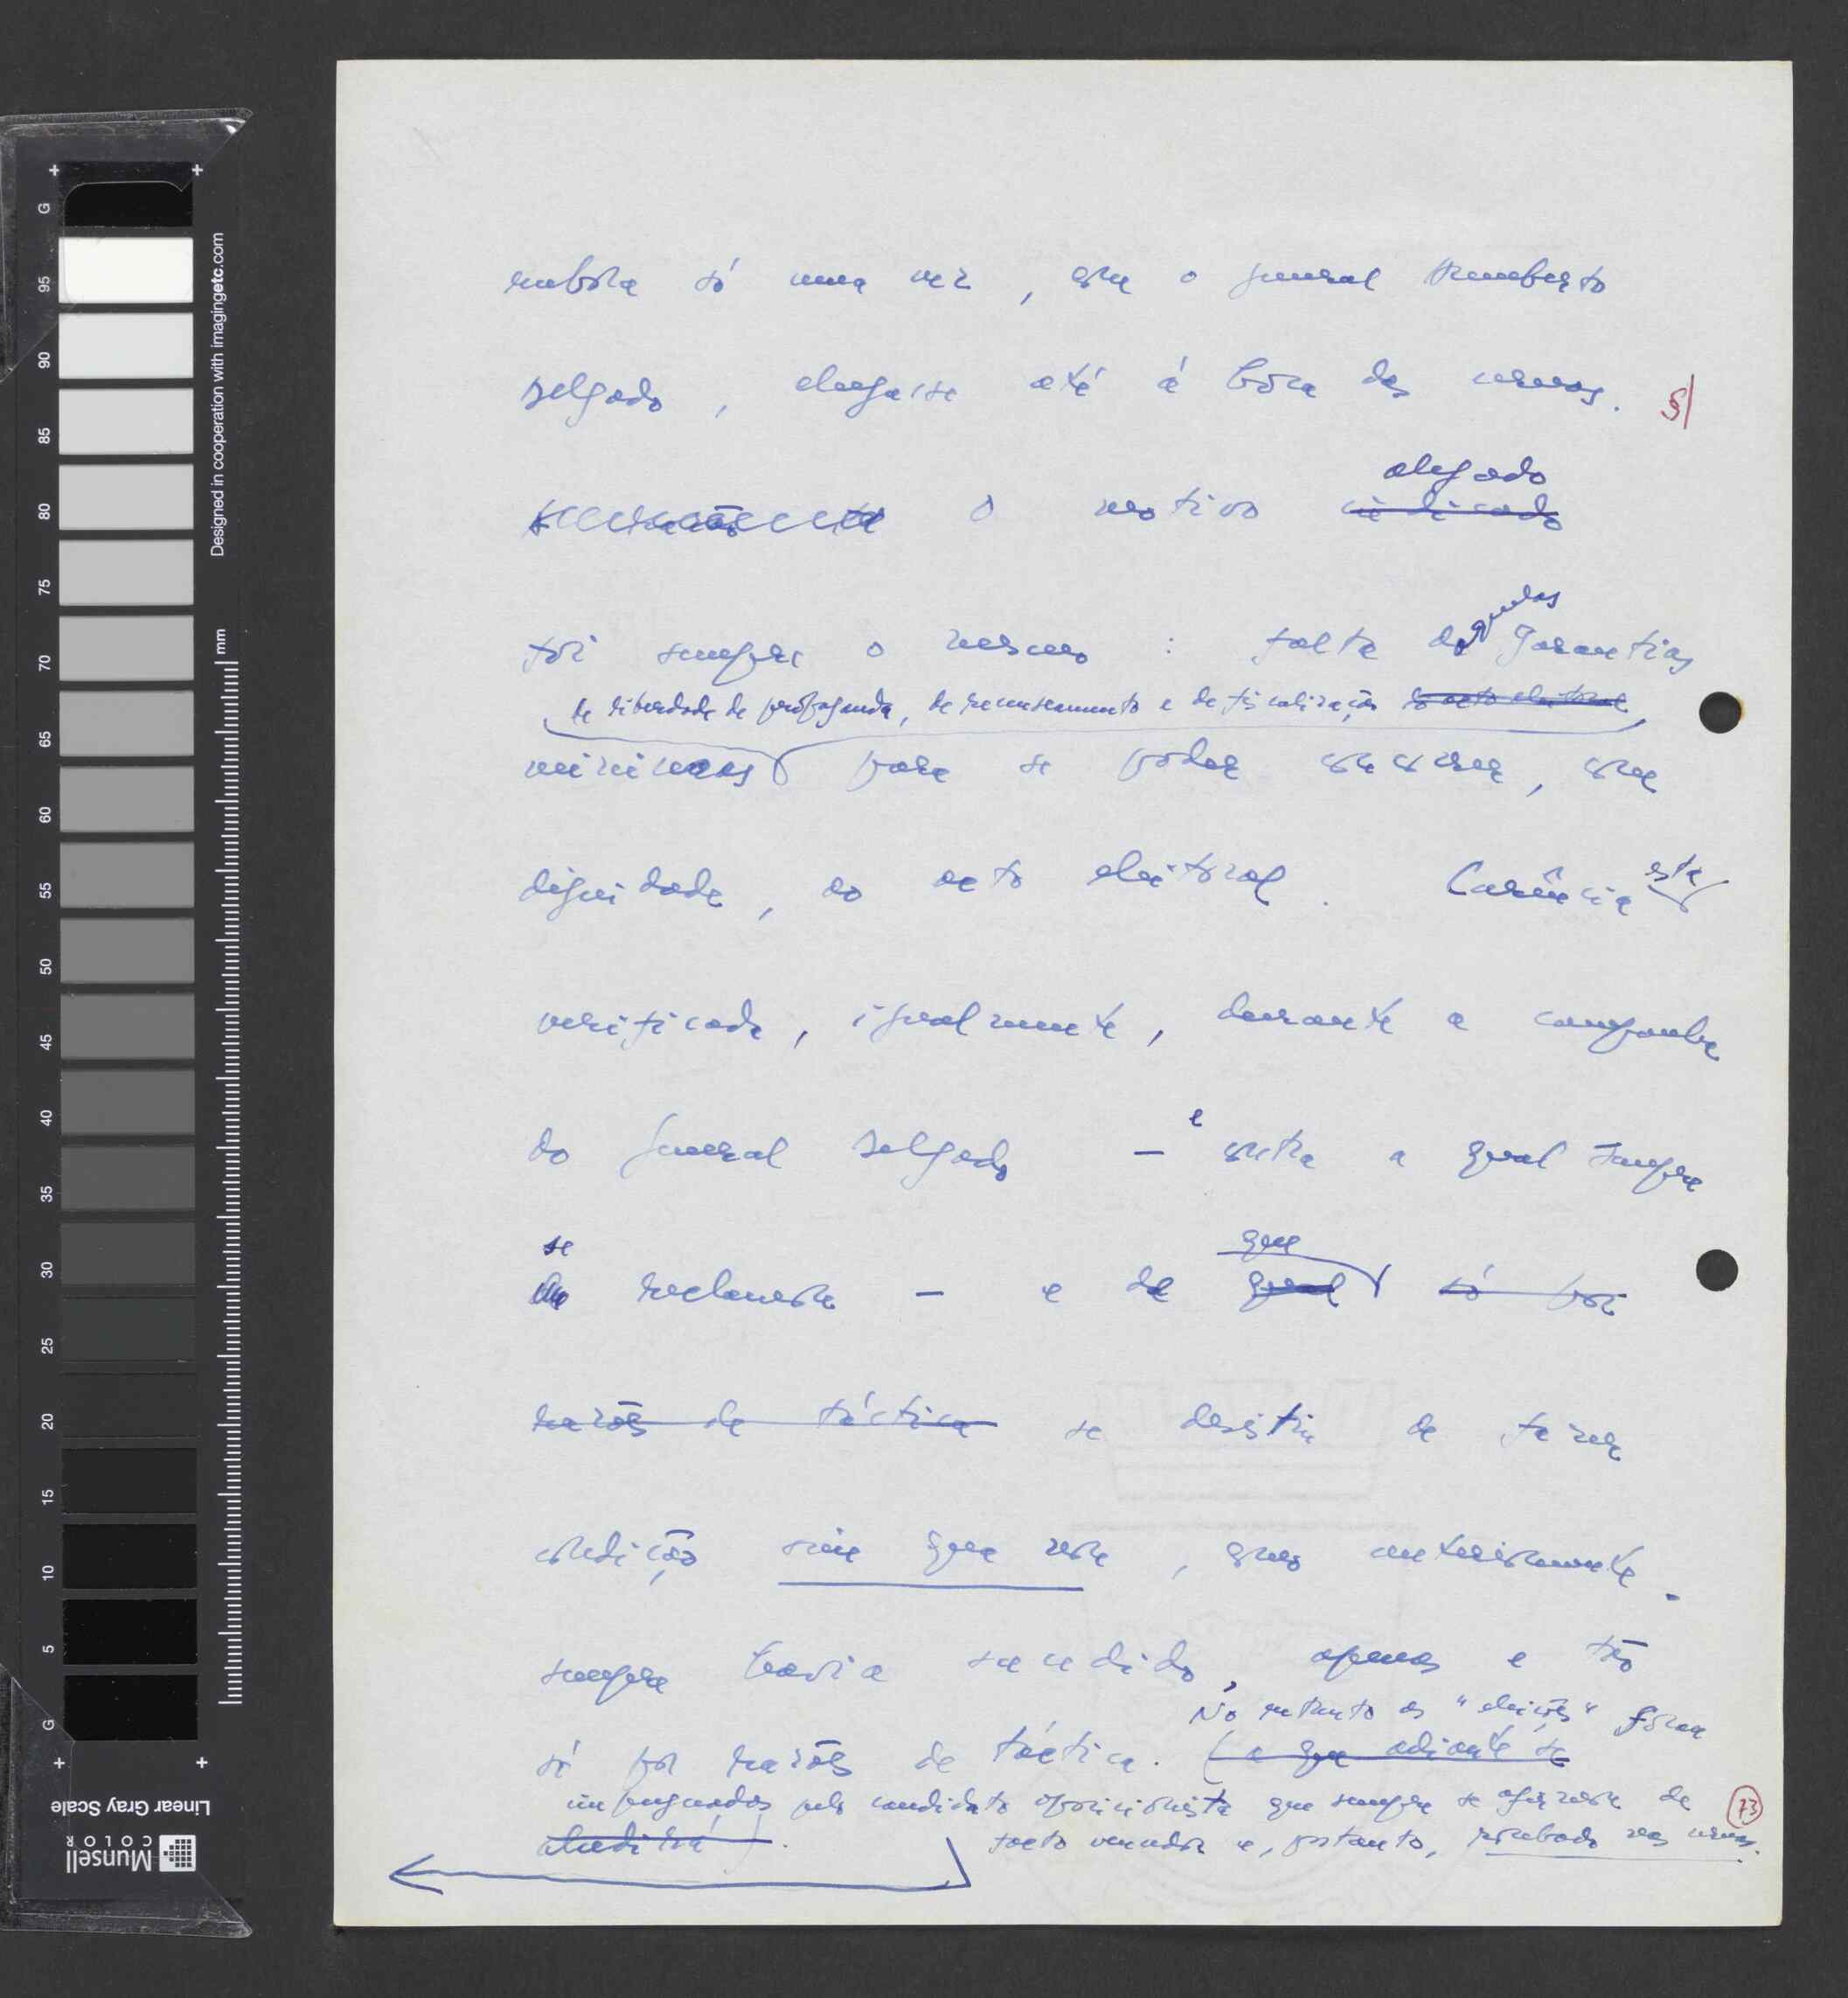 embora só uma vez, com o general Humberto
Delgado, chegasse até à boca das urnas. §|
O motivo alegado indicado
foi sempre o mesmo: falta das garantias
de liberdade de propaganda, de recenseamento e de fiscalização do acto eleitoral,
mínimas para se poder concorrer, com
dignidade, ao acto eleitoral. Carência esta
verificada, igualmente, durante a campanha
do general Delgado — e contra a qual sempre
se reclamou — e de que qual só por
razões de táctica se desistiu de fazer
condição sine qua non, como anteriormente
sempre havia sucedido, apenas e tão
No entanto as "eleições" foram
só por razões de táctica. (a que adiante se
impugnadas pelo candidato oposicionista que sempre se afirmou de
aludirá).
facto vencedor e, portanto, roubado nas urnas.
73
G 95 90 85 80 75 70 65 60 55 50 45 40 35 30 25 20 15 10 5 G
mm
Designed in cooperation with imagingetc.com
Linear Gray Scale
Munsell
COLOR